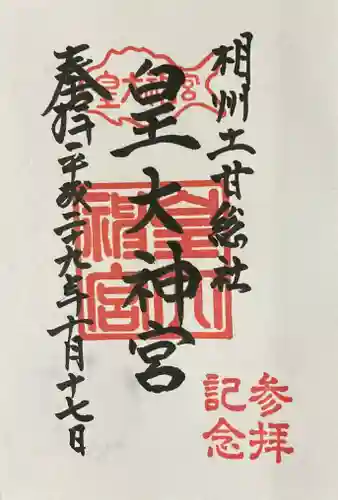 相州土甘総社
皇大神宮
奉拝 平成二十九年十月十七日
皇大神宮
皇大神宮
参拝
記念